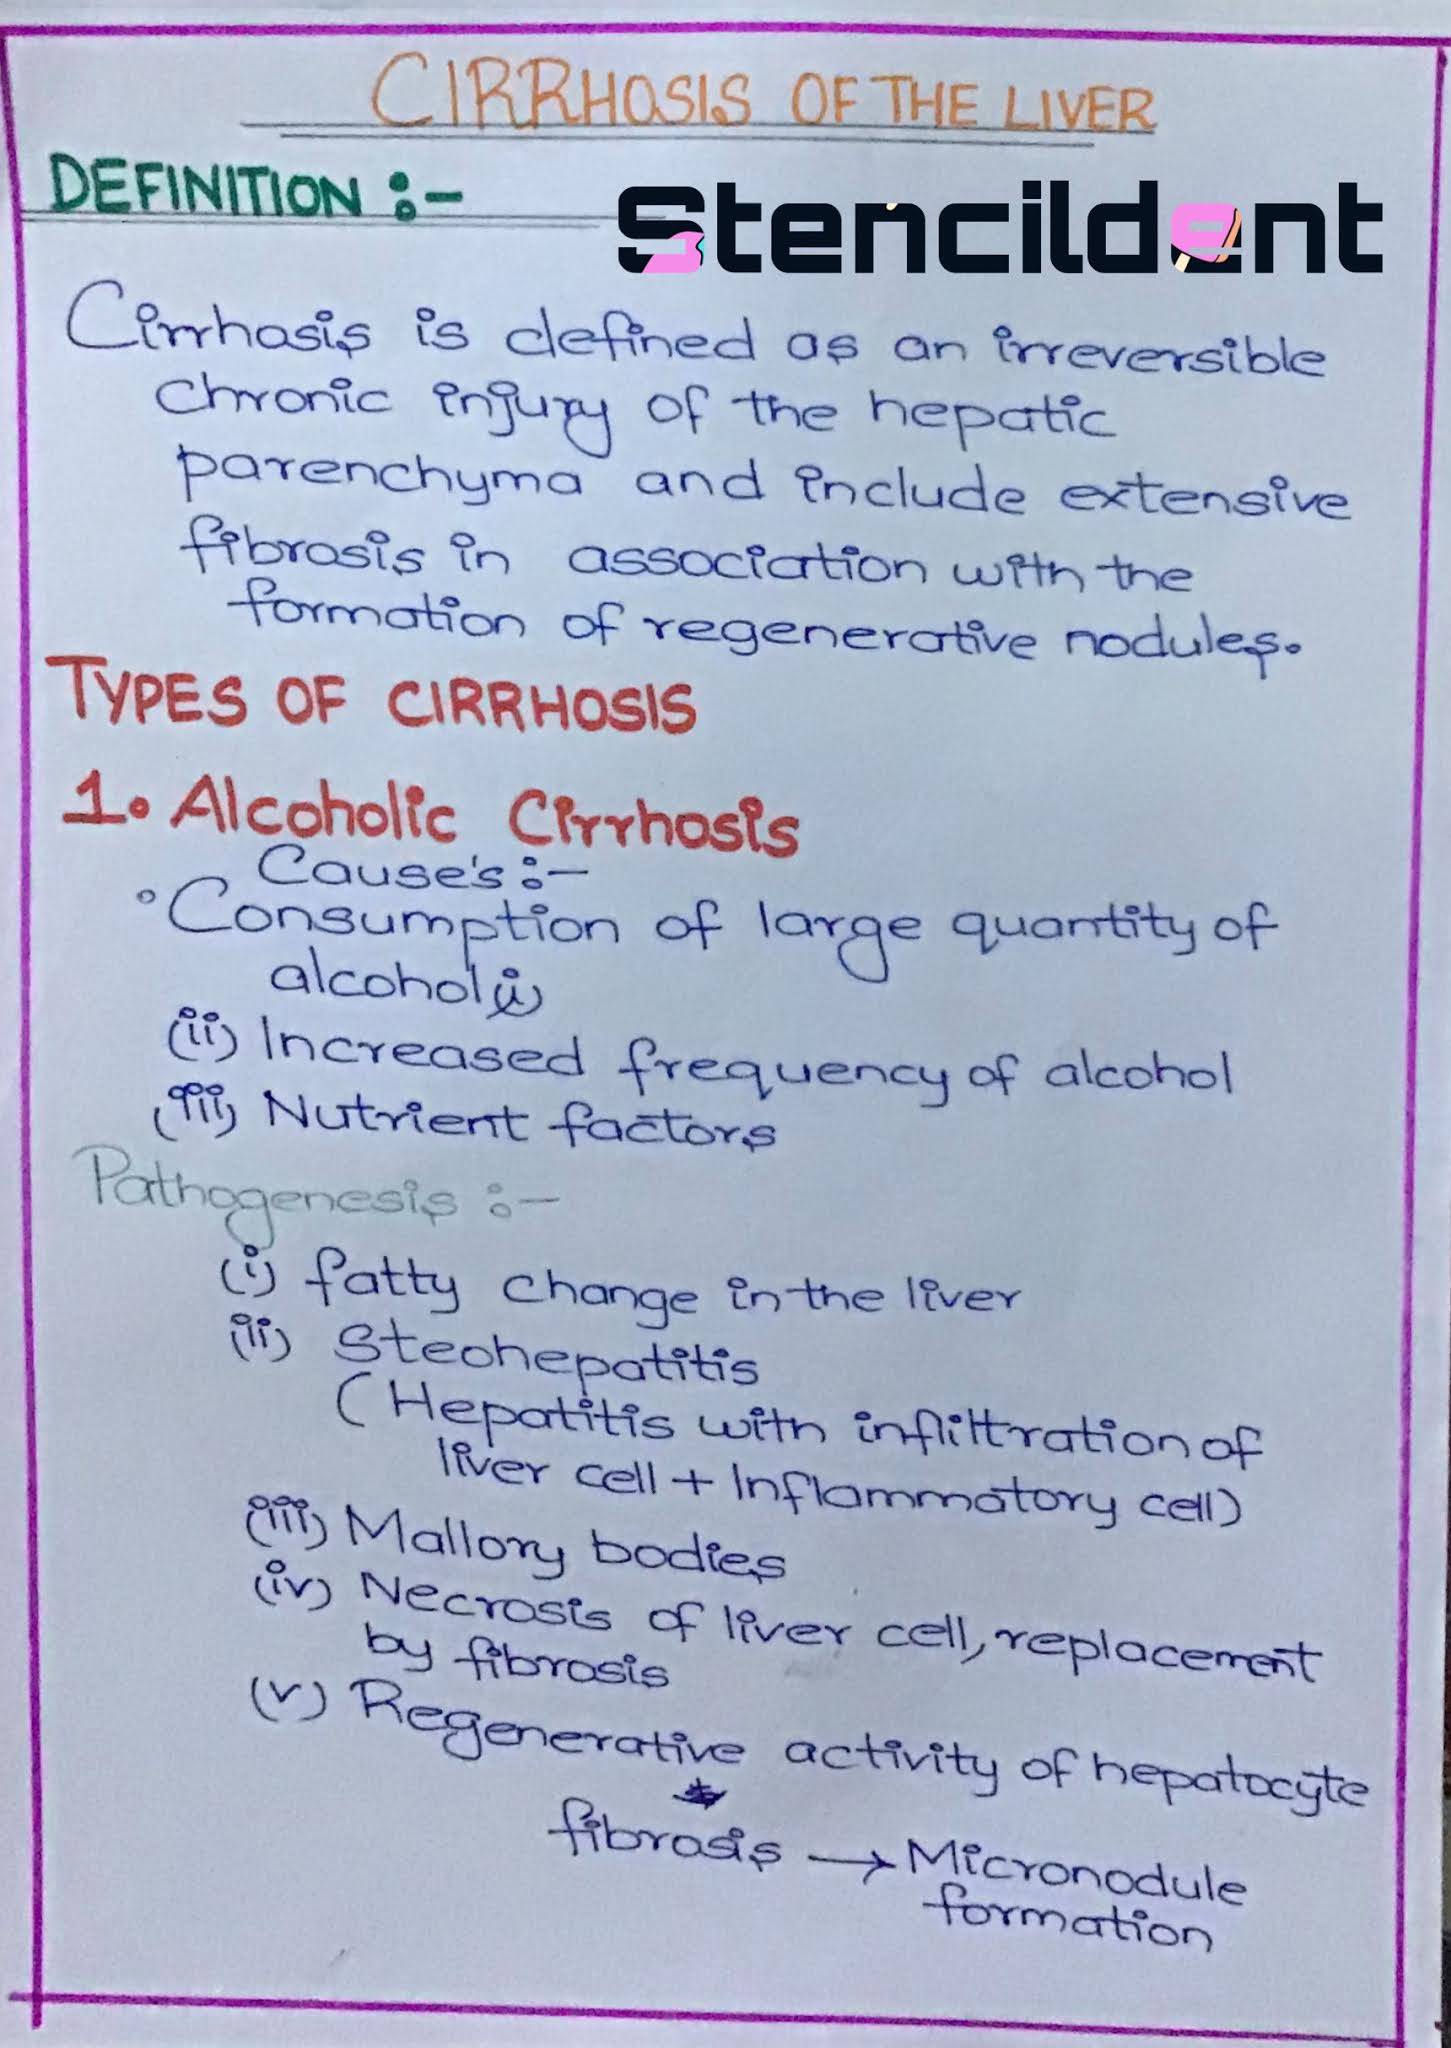 CIRRHOSIS OF THE LIVER
DEFINITION :-
Stencildent
Cirrhosis is defined as an irreversible
chronic injury of the hepatic
parenchyma and include extensive
fibrosis in association with the
formation of regenerative nodules.
TYPES OF CIRRHOSIS
1. Alcoholic Cirrhosis
Cause's :-
° Consumption of large quantity of
alcohol
(ii) Increased frequency of alcohol
(iii) Nutrient factors
Pathogenesis :-
(i) fatty change in the liver
(ii) Steohepatitis
(Hepatitis with infliltration of
liver cell + Inflammatory cell)
(iii) Mallory bodies
(iv) Necrosis of liver cell, replacement
by fibrosis
(v) Regenerative activity of hepatocyte
fibrosis → Micronodule
formation